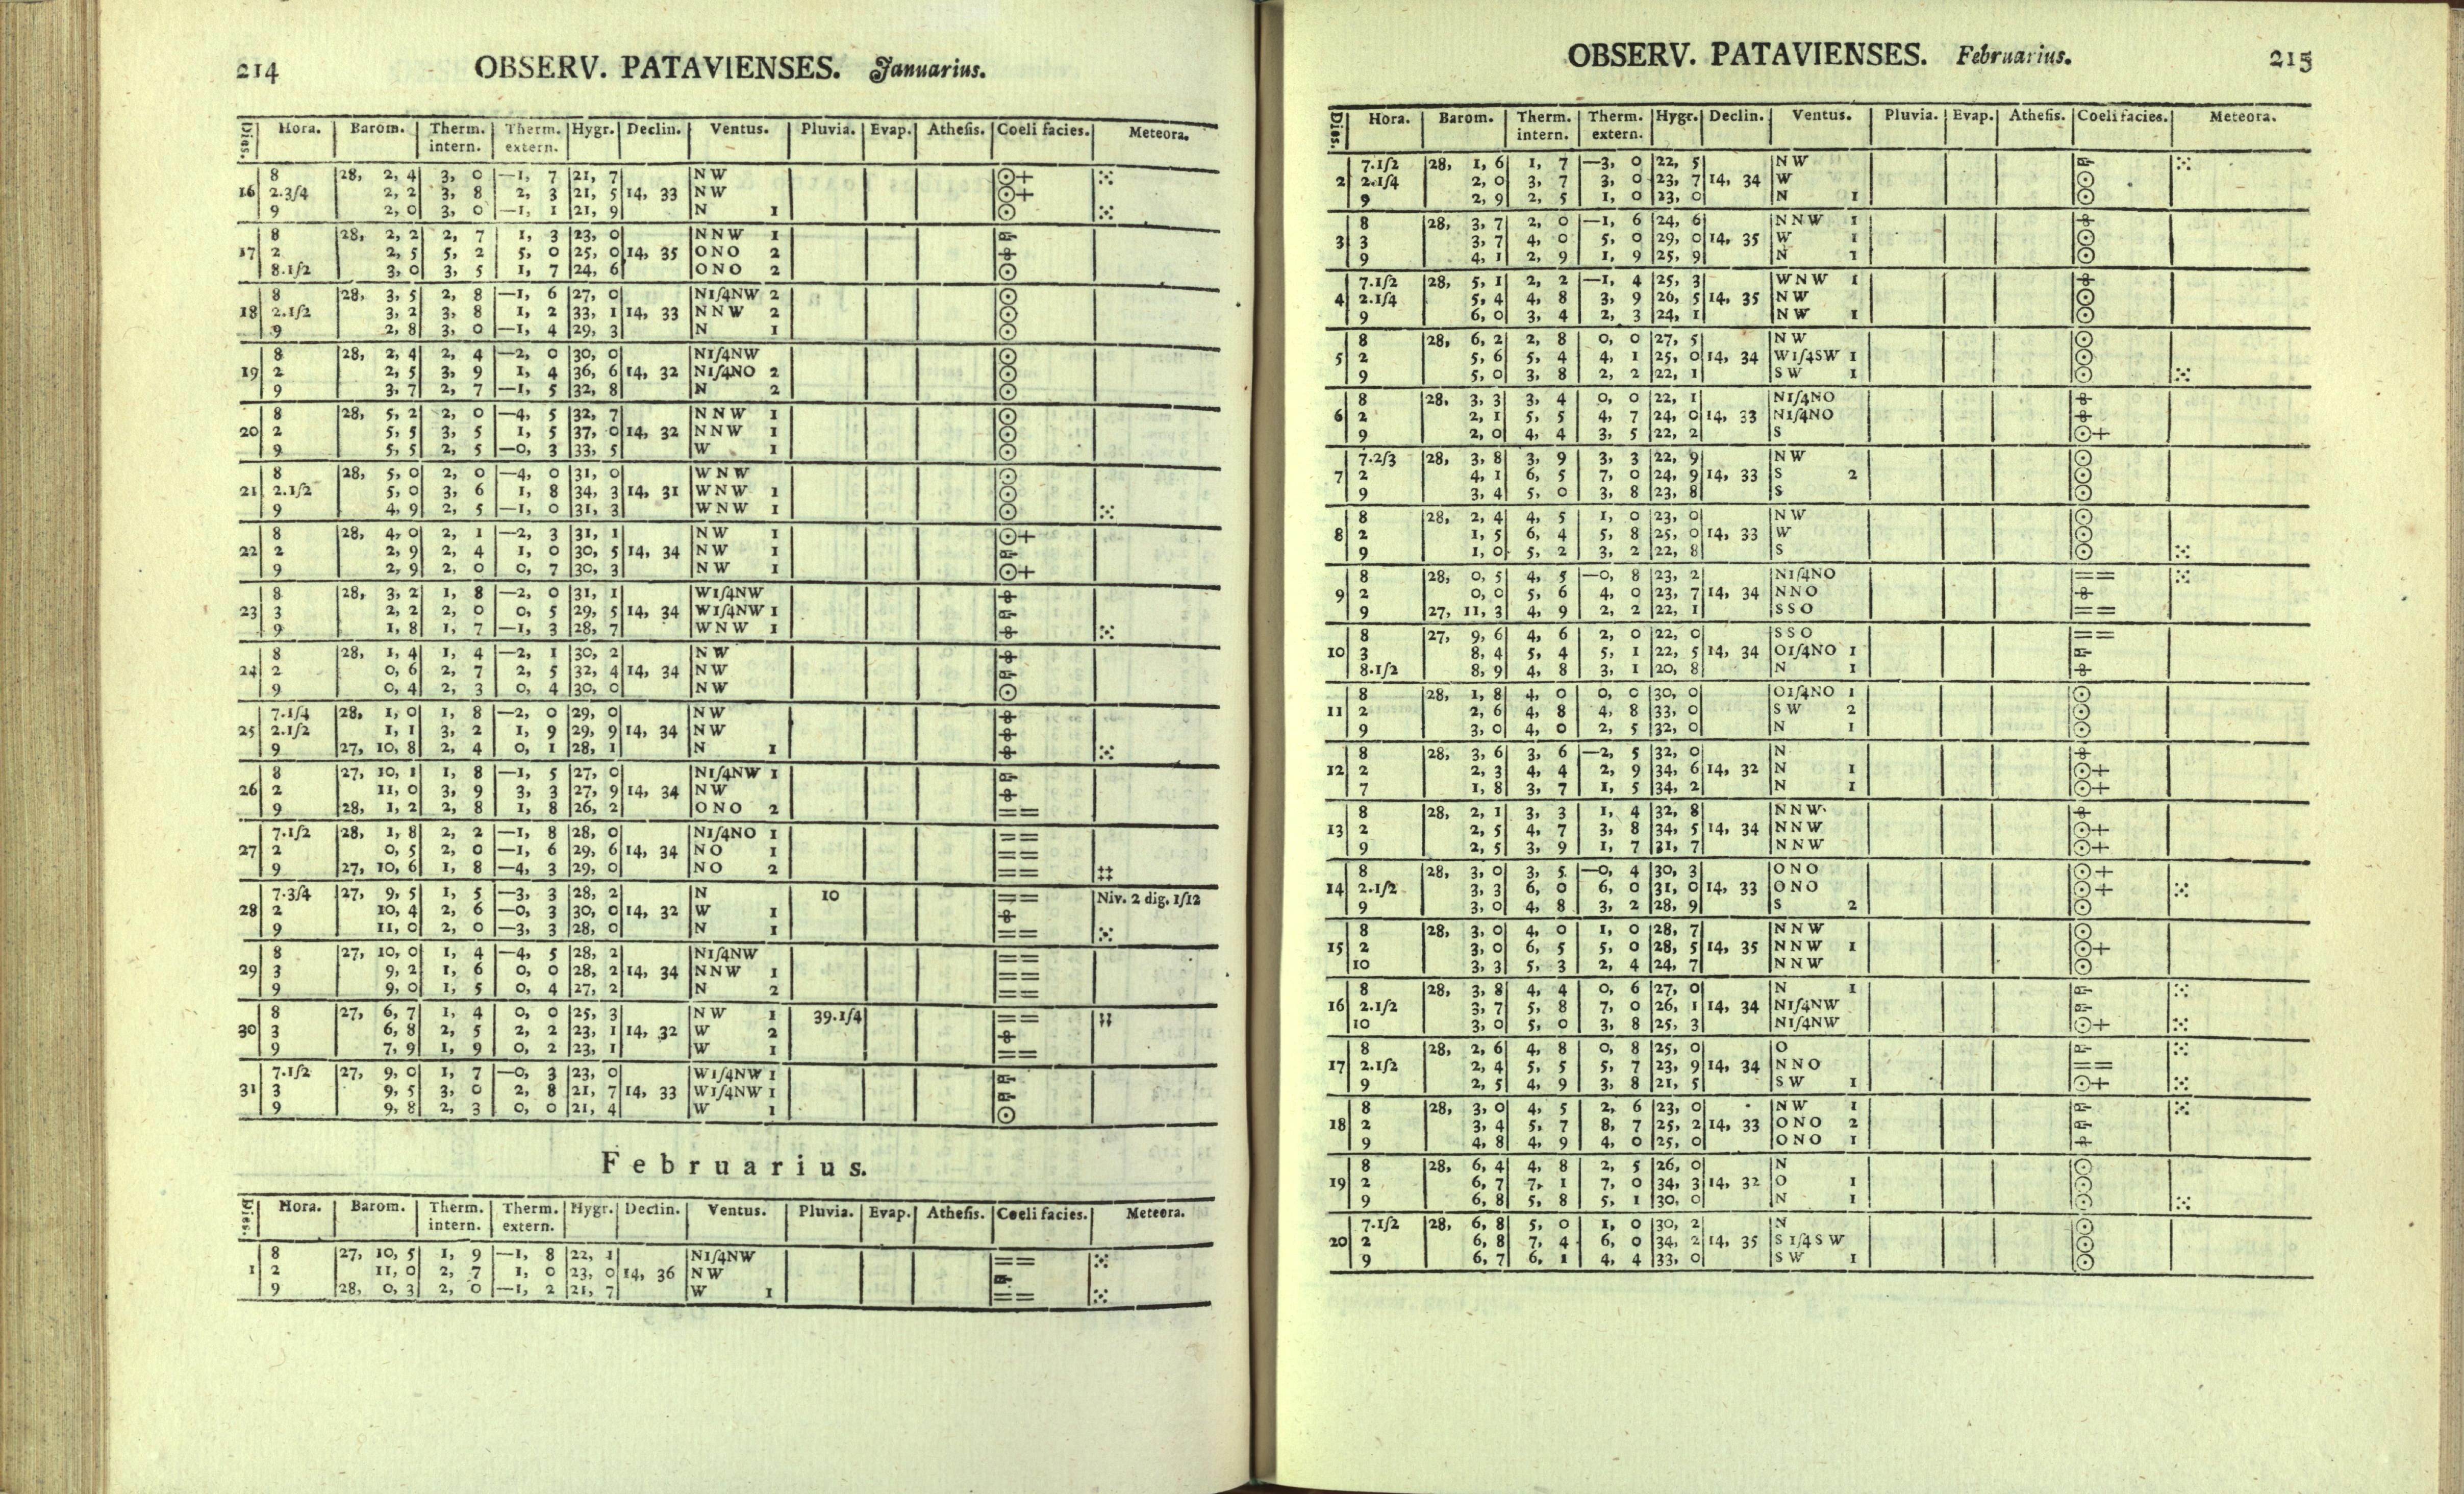 214 OBSERV. PATAVIENSES. Januarius.
Dies. Hora. Barom. Therm. intern. Therm. extern. Hygr. Declin. Ventus. Pluvia. Evap. Athesis. Coeli facies. Meteora.
8 28, 2, 4 3, 0 —1, 7 21, 7 N W ⊙+ ⁙
16 2.3/4 2, 2 3, 8 2, 3 21, 5 14, 33 N W ⊙+
9 2, 0 3, 0 —1, 1 21, 9 N 1 ⊙ ⁙
8 28, 2, 2 2, 7 1, 3 23, 0 N N W 1
17 2 2, 5 5, 2 5, 0 25, 0 14, 35 O N O 2
8.1/2 3, 0 3, 5 1, 7 24, 6 O N O 2 ⊙
8 28, 3, 5 2, 8 —1, 6 27, 0 N1/4NW 2 ⊙
18 2.1/2 3, 2 3, 8 1, 2 33, 1 14, 33 N N W 2 ⊙
9 2, 8 3, 0 —1, 4 29, 3 N 1 ⊙
8 28, 2, 4 2, 4 —2, 0 30, 0 N1/4NW ⊙
19 2 2, 5 3, 9 1, 4 36, 6 14, 32 N1/4NO 2 ⊙
9 3, 7 2, 7 —1, 5 32, 8 N 2 ⊙
8 28, 5, 2 2, 0 —4, 5 32, 7 N N W 1 ⊙
20 2 5, 5 3, 5 1, 5 37, 0 14, 32 N N W 1 ⊙
9 5, 5 2, 5 —0, 3 33, 5 W 1 ⊙
8 28, 5, 0 2, 0 —4, 0 31, 0 W N W ⊙
21 2.1/2 5, 0 3, 6 1, 8 34, 3 14, 31 W N W 1 ⊙
9 4, 9 2, 5 —1, 0 31, 3 W N W 1 ⊙ ⁙
8 28, 4, 0 2, 1 —2, 3 31, 1 N W 1 ⊙+
22 2 2, 9 2, 4 1, 0 30, 5 14, 34 N W 1
9 2, 9 2, 0 0, 7 30, 3 N W 1 ⊙+
8 28, 3, 2 1, 8 —2, 0 31, 1 W1/4NW
23 3 2, 2 2, 0 0, 5 29, 5 14, 34 W1/4NW 1
9 1, 8 1, 7 —1, 3 28, 7 W N W 1 ⁙
8 28, 1, 4 1, 4 —2, 1 30, 2 N W
24 2 0, 6 2, 7 2, 5 32, 4 14, 34 N W
9 0, 4 2, 3 0, 4 30, 0 N W ⊙
7.1/4 28, 1, 0 1, 8 —2, 0 29, 0 N W
25 2.1/2 1, 1 3, 2 1, 9 29, 9 14, 34 N W
9 27, 10, 8 2, 4 0, 1 28, 1 N 1 ⁙
8 27, 10, 1 1, 8 —1, 5 27, 0 N1/4NW 1
26 2 11, 0 3, 9 3, 3 27, 9 14, 34 N W
9 28, 1, 2 2, 8 1, 8 26, 2 O N O 2 ==
7.1/2 28, 1, 8 2, 2 —1, 8 28, 0 N1/4NO 1 ==
27 2 0, 5 2, 0 —1, 6 29, 6 14, 34 N O 1 ==
9 27, 10, 6 1, 8 —4, 3 29, 0 N O 2 ==
7.3/4 27, 9, 5 1, 5 —3, 3 28, 2 N 10 == Niv. 2 dig. 1/12
28 2 10, 4 2, 6 —0, 3 30, 0 14, 32 W 1
9 11, 0 2, 0 —3, 3 28, 0 N 1 == ⁙
8 27, 10, 0 1, 4 —4, 5 28, 2 N1/4NW ==
29 3 9, 2 1, 6 0, 0 28, 2 14, 34 N N W 1 ==
9 9, 0 1, 5 0, 4 27, 2 N 2 ==
8 27, 6, 7 1, 4 0, 0 25, 3 N W 1 39.1/4 ==
30 3 6, 8 2, 5 2, 2 23, 1 14, 32 W 2
9 7, 9 1, 9 0, 2 23, 1 W 1 ==
7.1/2 27, 9, 0 1, 7 —0, 3 23, 0 W1/4NW 1
31 3 9, 5 3, 0 2, 8 21, 7 14, 33 W1/4NW 1
9 9, 8 2, 3 0, 0 21, 4 W 1 ⊙
Februarius.
Dies. Hora. Barom. Therm. intern. Therm. extern. Hygr. Declin. Ventus. Pluvia. Evap. Athesis. Coeli facies. Meteora.
8 27, 10, 5 1, 9 —1, 8 22, 1 N1/4NW == ⁙
1 2 11, 0 2, 7 1, 0 23, 0 14, 36 N W
9 28, 0, 3 2, 0 —1, 2 21, 7 W 1 == ⁙
OBSERV. PATAVIENSES. Februarius. 215
Dies. Hora. Barom. Therm. intern. Therm. extern. Hygr. Declin. Ventus. Pluvia. Evap. Athesis. Coeli facies. Meteora.
7.1/2 28, 1, 6 1, 7 —3, 0 22, 5 N W ⁙
2 2.1/4 2, 0 3, 7 3, 0 23, 7 14, 34 W ⊙
9 2, 9 2, 5 1, 0 23, 0 N 1 ⊙
8 28, 3, 7 2, 0 —1, 6 24, 6 N N W 1
3 3 3, 7 4, 0 5, 0 29, 0 14, 35 W 1 ⊙
9 4, 1 2, 9 1, 9 25, 9 N 1 ⊙
7.1/2 28, 5, 1 2, 2 —1, 4 25, 3 W N W 1
4 2.1/4 5, 4 4, 8 3, 9 26, 5 14, 35 N W ⊙
9 6, 0 3, 4 2, 3 24, 1 N W 1 ⊙
8 28, 6, 2 2, 8 0, 0 27, 5 N W ⊙
5 2 5, 6 5, 4 4, 1 25, 0 14, 34 W1/4SW 1 ⊙
9 5, 0 3, 8 2, 2 22, 1 S W 1 ⊙ ⁙
8 28, 3, 3 3, 4 0, 0 22, 1 N1/4NO
6 2 2, 1 5, 5 4, 7 24, 0 14, 33 N1/4NO
9 2, 0 4, 4 3, 5 22, 2 S ⊙+
7.2/3 28, 3, 8 3, 9 3, 3 22, 9 N W ⊙
7 2 4, 1 6, 5 7, 0 24, 9 14, 33 S 2 ⊙
9 3, 4 5, 0 3, 8 23, 8 S ⊙
8 28, 2, 4 4, 5 1, 0 23, 0 N W ⊙
8 2 1, 5 6, 4 5, 8 25, 0 14, 33 W ⊙
9 1, 0 5, 2 3, 2 22, 8 S ⊙ ⁙
8 28, 0, 5 4, 5 —0, 8 23, 2 N1/4NO == ⁙
9 2 0, 0 5, 6 4, 0 23, 7 14, 34 N N O
9 27, 11, 3 4, 9 2, 2 22, 1 S S O ==
8 27, 9, 6 4, 6 2, 0 22, 0 S S O ==
10 3 8, 4 5, 4 5, 1 22, 5 14, 34 O1/4NO 1
8.1/2 8, 9 4, 8 3, 1 20, 8 N 1
8 28, 1, 8 4, 0 0, 0 30, 0 O1/4NO 1 ⊙
11 2 2, 6 4, 8 4, 8 33, 0 S W 2 ⊙
9 3, 0 4, 0 2, 5 32, 0 N 1 ⊙
8 28, 3, 6 3, 6 —2, 5 32, 0 N
12 2 2, 3 4, 4 2, 9 34, 6 14, 32 N 1 ⊙+
7 1, 8 3, 7 1, 5 34, 2 N 1 ⊙+
8 28, 2, 1 3, 3 1, 4 32, 8 N N W
13 2 2, 5 4, 7 3, 8 34, 5 14, 34 N N W ⊙+
9 2, 5 3, 9 1, 7 31, 7 N N W ⊙+
8 28, 3, 0 3, 5 —0, 4 30, 3 O N O ⊙+
14 2.1/2 3, 3 6, 0 6, 0 31, 0 14, 33 O N O ⊙+ ⁙
9 3, 0 4, 8 3, 2 28, 9 S 2 ⊙
8 28, 3, 0 4, 0 1, 0 28, 7 N N W ⊙
15 2 3, 0 6, 5 5, 0 28, 5 14, 35 N N W 1 ⊙+
10 3, 3 5, 3 2, 4 24, 7 N N W ⊙
8 28, 3, 8 4, 4 0, 6 27, 0 N 1 ⁙
16 2.1/2 3, 7 5, 8 7, 0 26, 1 14, 34 N1/4NW
10 3, 0 5, 0 3, 8 25, 3 N1/4NW ⊙+ ⁙
8 28, 2, 6 4, 8 0, 8 25, 0 O ⁙
17 2.1/2 2, 4 5, 5 5, 7 23, 9 14, 34 N N O ==
9 2, 5 4, 9 3, 8 21, 5 S W 1 ⊙+ ⁙
8 28, 3, 0 4, 5 2, 6 23, 0 N W 1 ⁙
18 2 3, 4 5, 7 8, 7 25, 2 14, 33 O N O 2
9 4, 8 4, 9 4, 0 25, 0 O N O 1
8 28, 6, 4 4, 8 2, 5 26, 0 N ⊙
19 2 6, 7 7, 1 7, 0 34, 3 14, 32 O 1 ⊙
9 6, 8 5, 8 5, 1 30, 0 N 1 ⊙ ⁙
7.1/2 28, 6, 8 5, 0 1, 0 30, 2 N ⊙
20 2 6, 8 7, 4 6, 0 34, 2 14, 35 S 1/4 S W ⊙
9 6, 7 6, 1 4, 4 33, 0 S W 1 ⊙